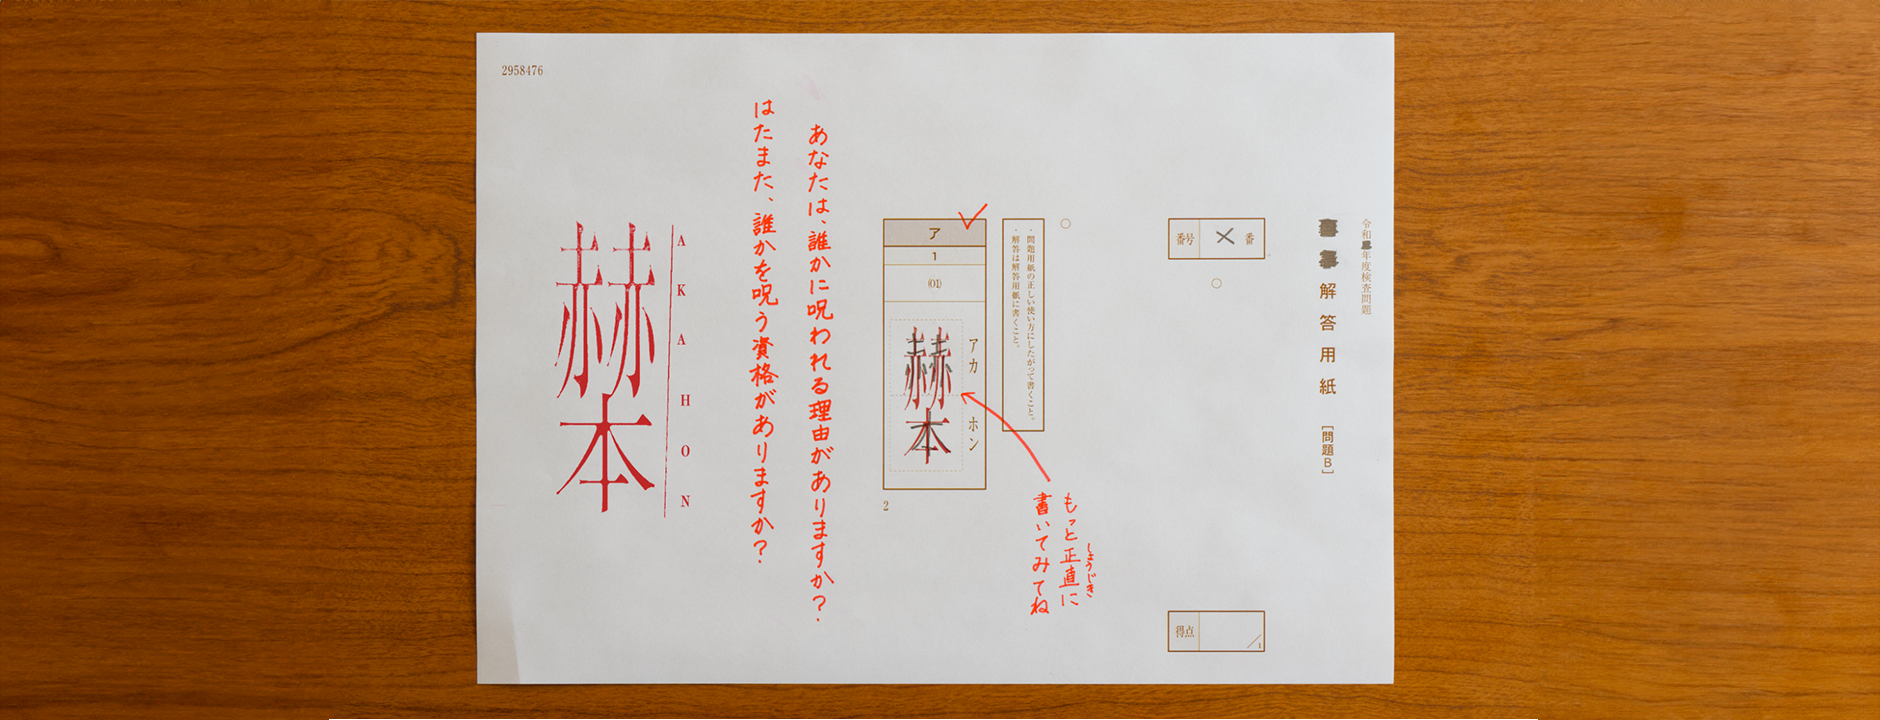 2958476
令和年度検査問題
解答用紙
[問題B]
番号
番
得点
1
・問題用紙の正しい使い方にしたがって書くこと。
・解答は解答用紙に書くこと。
ア
1
(01)
アカ ホン
赫本
2
もっと正直に
しょうじき
書いてみてね
あなたは、誰かに呪われる理由がありますか?
はたまた、誰かを呪う資格がありますか?
AKAHON
赫本